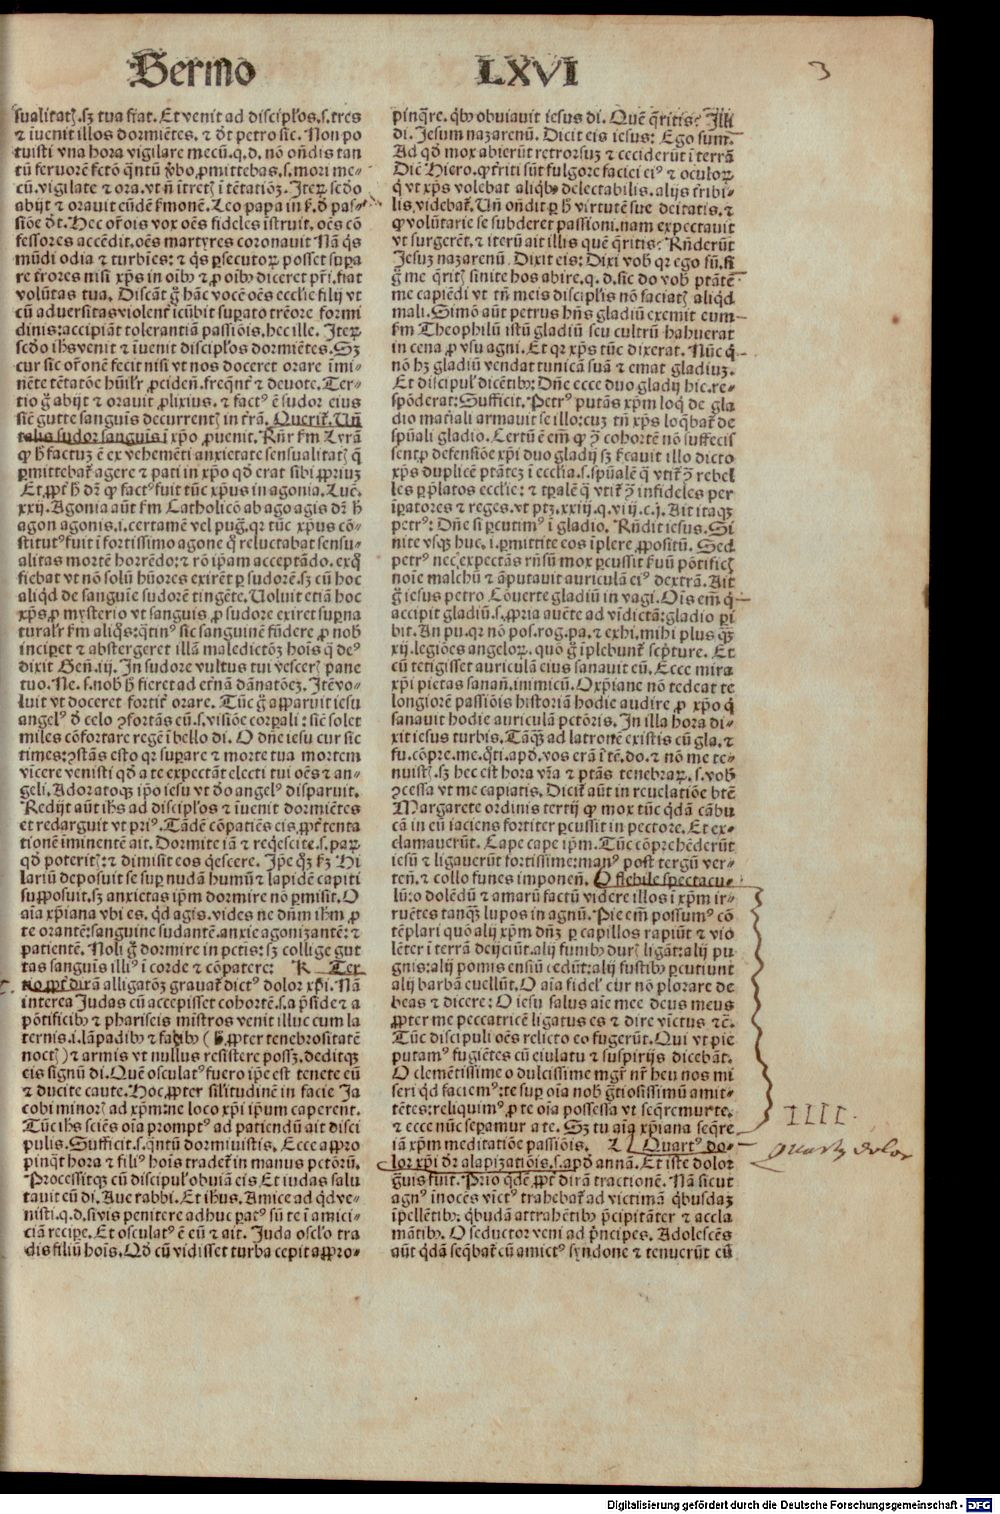 Sermo LXVI
3
sualitatꝭ. sꝫ tua fiat. Et venit ad discipl'os. s. tres
⁊ iuenit illos dormiẽtes. ⁊ dt̃ petro sic̃. Non po
tuisti vna hora vigilare mecũ. q. d. nõ oñdis tan
cũ. vigilate ⁊ ora. vt ñ ĩtretꝭ ĩ tẽtatiõꝫ. Iteꝝ scd̃o
abijt ⁊ orauit eũdẽ
siõe dt̃. Hec or̃ois vox oẽs fideles ĩstruit. oẽs cõ
fessores accẽdit. oẽs martyres coronauit Nã q̃s
mũdi odia ⁊ turbiẽs: ⁊ q̃s ꝑsecutoꝝ posset supa
re tr̃ores nisi xp̃s in oĩbꝰ ⁊ ꝓ oĩbꝰ diceret pr̃i. fiat
volũtas tua. Discãt g̃ hãc vocẽ oẽs eccl'ie filij vt
cũ aduersitas violent̃ icũbit supato tr̃ore formi
dinis: accipiãt tolerantiã passiõis. hec ille. Iteꝝ
scd̃o ih̃s venit ⁊ iuenit discipl'os dormiẽtes. Sꝫ
cur sic or̃onẽ fecit nisi vt nos doceret orare ĩmi-
nẽte tẽtatõe
tio g̃ abijt ⁊ orauit ꝓlixius. ⁊ factꝰ ẽ sudor eius
sic̃ gutte sanguĩs decurrentꝭ in tr̃ã. Querit̃. Uñ
talis sudor sanguĩs ĩ xp̃o ꝓuenit. Rñr
ꝙ h̃ factuꝫ ẽ ex vehemẽti anxietate sensualitatꝭ q̃
ꝑmittebat̃ agere ⁊ pati in xp̃o qd̃ erat sibi ꝓpriuꝫ
xxij. Agonia aũt
agon agonis. i. certamẽ vel pug̃. qr tũc xp̃us cõ-
stitutꝰ fuit ĩ fortissimo agone q̃ reluctabat sensu-
alitas mortẽ horrẽdo: ⁊ rõ ip̃am acceptãdo. exq̃
fiebat vt nõ solũ hũores exirẽt ꝑ sudorẽ. sꝫ cũ hoc
aliqd̃ de sanguĩe sudorẽ tingẽte. Uoluit etiã hoc
xp̃s ꝓ mysterio vt sanguis ꝓ sudore exiret supna
inciꝑet ⁊ abstergeret illã maledictõꝫ hoĩs q̃ deꝰ
dixit Geñ. iij. In sudore vultus tui vescerꝭ pane
luit vt doceret fortit̃ orare. Tũc g̃ apparuit iesu
miles cõfortare regẽ ĩ bello di. O dñe iesu cur sic
times: ꝯstãs esto qr supare ⁊ morte tua mortem
vicere venisti qd̃ a te expectãt electi tui oẽs ⁊ an-
geli. Adoratoqꝫ ip̃o iesu vt d̃o angelꝰ disparuit.
Redijt aũt ih̃s ad discipl'os ⁊ ĩuenit dormiẽtes
et redarguit vt priꝰ. Tãdẽ cõpatiẽs eis ꝓpt̃ tenta
tionẽ ĩminentẽ ait. Dormite iã ⁊ req̃escite. s. paꝝ
qd̃ poteritꝭ: ⁊ dimisit eos q̃escere. Ip̃e q̃ꝫ
lariũ deposuit se sup nudã humũ ⁊ lapidẽ capiti
supposuit. sꝫ anxietas ip̃m dormire nõ ꝑmisit. O
aĩa xp̃iana vbi es. qd̃ agis. vides ne dñm ih̃m ꝓ
te orantẽ: sanguine sudantẽ. anxie agonizantẽ: ⁊
patientẽ. Noli g̃ dormire in pctis: sꝫ collige gut
tas sanguĩs illiꝰ ĩ corde ⁊ cõpatere: Ter-
tio ꝓpt̃ dirã alligatõꝫ grauat̃ dictꝰ dolor xp̃i. Nã
interea Judas cũ accepisset cohortẽ. s. a
põtificibꝰ ⁊ phariseis mĩstros venit illuc cum la
ternis. i. lãpadibꝰ ⁊ facibꝰ (h̃ ꝓpter tenebrositatẽ
noctꝭ) ⁊ armis vt nullus resistere possꝫ. deditqꝫ
eis signũ di. Quẽ osculatꝰ fuero ip̃e est tenete eũ
⁊ ducite caute. Hoc ꝓpter sil'itudinẽ in facie Ja
cobi minorꝭ ad xp̃m: ne loco xp̃i ip̃um caperent.
Tũc ih̃s sciẽs oĩa promptꝰ ad patiendũ ait disci
pulis. Sufficit. s. q̃ntũ dormiuistis. Ecce appro
pinq̃t hora ⁊ filiꝰ hoĩs tradet̃ in manus pctõrũ.
Processitqꝫ cũ discipul' obuiã eis Et iudas salu
tauit eũ di. Aue rabbi. Et ih̃us. Amice ad qd̃ ve-
nisti. q. d. si vis penitere adhuc paratꝰ sũ te ĩ amici-
ciã recipe. Et osculatꝰ ẽ eũ ⁊ ait. Juda oscl'o tra
dis filiũ hoĩs. Qd̃ cũ vidisset turba cepit appro-
pinq̃re. qb̃ꝰ obuiauit iesus di. Quẽ q̃ritis: Illi
di. Jesum nazarenũ. Dicit eis iesus: Ego sum.
Ad qd̃ mox abierũt retrorsuꝫ ⁊ ceciderũt ĩ terrã
Dic̃ Hiero. ꝙ tr̃iti sũt fulgore faciei eiꝰ ⁊ oculoꝝ
q̃ vt xp̃s volebat aliqb̃ꝰ delectabilis. alijs tr̃ibi-
lis videbat̃. Uñ oñdit ꝑ h̃ virtutẽ sue deitatis. ⁊
ꝙ volũtarie se subderet passioni. nam expectauit
vt surgerẽt. ⁊ iterũ ait illis quẽ q̃ritis: Rñderũt
Jesuꝫ nazarenũ Dixit eis: Dixi vob̃ qr ego sũ. si
g̃ me q̃ritꝭ sinite hos abire. q. d. sic do vob̃ ptãtẽ
me capiẽdi vt tñ meis discipl'is nõ faciatꝭ aliqd̃
mali. Simõ aũt petrus hñs gladiũ exemit eum-
km̃ Theophilũ istũ gladiũ seu cultrũ habuerat
in cena ꝓ vsu agni. Et qr xp̃s tũc dixerat. Nũc q̃
nõ hꝫ gladiũ vendat tunicã suã ⁊ emat gladiuꝫ.
Et discipul' dicẽtibꝰ: Dñe ecce duo gladij hic. re-
spõderat: Sufficit. Petrꝰ putãs xp̃m loq̃ de gla
dio mat̃iali armauit se illo: cuꝫ tñ xp̃s loq̃bat̃ de
sp̃uali gladio. Certũ ẽ em̃ ꝙ ꝯ̃ cohortẽ nõ suffecis
xp̃s duplicẽ ptãteꝫ ĩ eccl'ia. s. sp̃ualẽ q̃ vtit̃ ꝯ̃ rebel
les ꝑ p̃latos eccl'ie: ⁊ tp̃alẽ q̃ vtit̃ ꝯ̃ infideles per
ĩꝑatores ⁊ reges. vt ptꝫ. xxiij. q. viij. c. j. Ait itaqꝫ
petrꝰ: Dñe si ꝑcutimꝰ ĩ gladio. Rñdit iesus. Si
nite vsqꝫ huc. i. ꝑmittite eos ĩplere ꝓpositũ. Sed
petrꝰ nec expectãs rñsũ mox ꝑcussit
noĩe malchũ ⁊ ãputauit auriculã eiꝰ dextrã. Ait
g̃ iesus petro Cõuerte gladiũ in vagi. Oĩs em̃ q̃
accipit gladiũ. s. ꝓpria aucte ad vĩdictã: gladio ꝑi
bit. An pu. qr nõ pos. rog. pa. ⁊ exhi. mihi plus q̃ꝫ
xij. legiões angeloꝝ. quõ g̃ ĩplebunt̃ scp̃ture. Et
cũ tetigisset auriculã eius sanauit eũ. Ecce mira
xp̃i pietas sanañ. inimicũ. O xp̃iane nõ tedeat te
longiorẽ passiõis historiã hodie audire ꝓ xp̃o q̃
sanauit hodie auriculã pctõris. In illa hora di-
xit iesus turbis. Tãq̃ꝫ ad latronẽ existis cũ gla. ⁊
fu. cõpre. me. q̃ti. apd̃. vos erã ĩ tẽ. do. ⁊ nõ me te-
nuistꝭ. sꝫ hec est hora vr̃a ⁊ ptãs tenebraꝝ. s. vob̃
ꝯcessa vt me capiatis. Dicit̃ aũt in reuelatiõe btẽ
Margarete ordinis tertij ꝙ mox tũc qd̃ã cãbu
cã in eũ iaciens fortiter ꝑcussit in pectore. Et ex-
clamauerũt. Cape cape ip̃m. Tũc cõprehẽderũt
iesũ ⁊ ligauerũt fortissime: manꝰ post tergũ ver-
teñ. ⁊ collo funes imponeñ. O flebile spectacu-
lũ: o dolẽdũ ⁊ amarũ factũ videre illos ĩ xp̃m ir-
ruẽtes tanq̃ꝫ lupos in agnũ. Pie em̃ possumꝰ cõ
tẽplari quõ alij xp̃m dñꝫ ꝑ capillos rapiũt ⁊ vio
lẽter ĩ terrã deijciũt. alij funibꝰ durꝭ ligãt: alij pu
gnis: alij pomis ensiũ cedũt: alij fustibꝰ ꝑcutiunt
alij barbã euellũt. O aĩa fidel' cur nõ plorare de
beas ⁊ dicere: O iesu salus aĩe mee deus meus
ꝓpter me peccatricẽ ligatus es ⁊ dire vĩctus ⁊c̃.
Tũc discipuli oẽs relicto eo fugerũt. Qui vt pie
putamꝰ fugiẽtes cũ eiulatu ⁊ suspirijs dicebãt.
O clemẽtissime o dulcissime mgr̃ nr̃ heu nos mi
seri qd̃ faciemꝰ: te sup oĩa nob̃ g̃tiosissimũ amit-
tẽtes: reliquimꝰ ꝓ te oĩa possessa vt seq̃remur te.
⁊ ecce nũc sepamur a te. Sꝫ tu aĩa xp̃iana seq̃re
iã xp̃m meditatiõe passiõis. Quartꝰ do-
lor xp̃i dr̃ alapizatiõis. s. apd̃ annã. Et iste dolor
g̃uis fuit. Prĩo qd̃ẽ ꝓpt̃ dirã tractionẽ. Nã sicut
agnꝰ inocẽs vĩctꝰ trahebat̃ ad victimã qb̃usdaꝫ
ĩpellẽtibꝰ: qb̃udã attrahẽtibꝰ p̃cipitãter ⁊ accla
mãtibꝰ. O seductor veni ad p̃ncipes. Adolescẽs
aũt qd̃ã seq̃bat̃ cũ amictꝰ syndone ⁊ tenuerũt eũ
IIII.
quartꝰ dolor
Digitalisierung gefördert durch die Deutsche Forschungsgemeinschaft - DFG